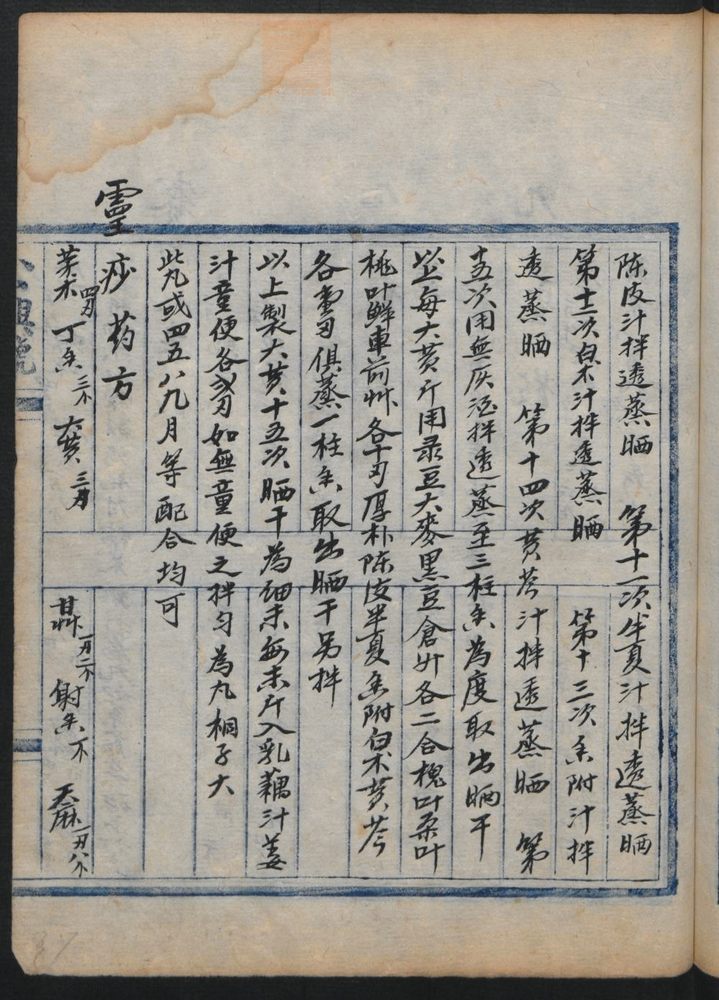 陈皮汁拌透蒸晒　第十一次半夏汁拌透蒸晒
第十二次白术汁拌透蒸晒　第十三次香附汁拌
透蒸晒　第十四次黄芩汁拌透蒸晒　第
十五次用無灰酒拌透蒸至三柱香為度取出晒干
以上每大黄斤用录豆大麥黑豆倉廾各二合槐叶桑叶
桃叶鲜車前艸各十刄厚朴陈皮半夏香附白术黄芩
各壹刄俱蒸一柱香取出晒干另拌
以上製大黄十五次晒干為细末每末斤入乳藕汁姜
汁童便各弍刄如無童便之拌匀為丸桐子大
此丸或四五八九月等配合均可
靈痧药方
茅术四刄　丁香三个　大黄三刄　甘艸一刄二个　射香一个　天麻一刄八个